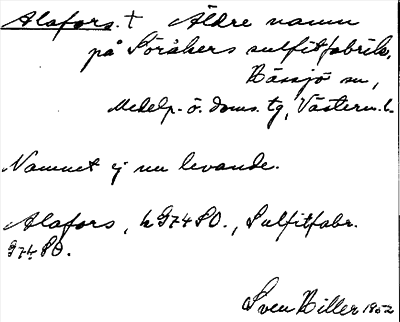 Alafors. † Äldre namn
på Söråkers sulfitfabrik,
Hässjö sn,
Medelp. ö. doms. tg, Västern. l.
Namnet ej nu levande.
Alafors, h 974 SO., Sulfitfabr.
974 SO.
Sven Hiller 1952